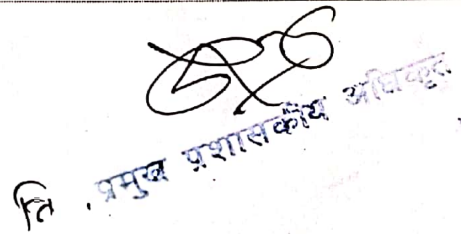 नि . प्रमुख प्रशासकीय अधिकृत